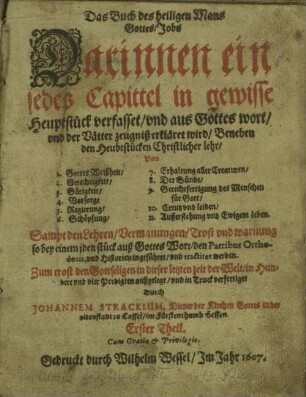 Das Buch des heiligen Mans
Gottes/Jobs
Darinnen ein
jedes Capittel in gewisse
Heuptstück verfasset/vnd aus Gottes wort/
vnd der Vätter zeugniß erkläret wird/Beneben
den Heubtstücken Christlicher lehr/
Von
1. Gottes Weißheit/
2. Gerechtigkeit/
3. Gütigkeit/
4. Vorsorge
5. Regierung/
6. Schöpfung/
7. Erhaltung aller Creaturen/
8. Der Sünde/
9. Gerechtfertigung des Menschen
für Gott/
10. Creutz vnd leiden/
11. Aufferstehung vnd Ewigem leben.
Sampt den Lehren/Vermanungen/Trost vnd warnung
so bey einem jden stück auß Gottes Wort/den Patribus Ortho-
doxis, vnd Historien ingeführet/vnd tractiret werden.
Zum trost den Gottseligen in dieser letzten zeit der Welt/in Hun-
dert vnd vier Predigten außgelegt/vnd in Truck verfertiget
Durch
JOHANNEM STRACKIUM, Diener der Kirchen Gottes in der
altenstadt zu Cassel/im Fürstenthumb Hessen.
Erster Theil.
Cum Gratia & Privilegio.
Gedruckt durch Wilhelm Wessel/Im Jahr 1607.